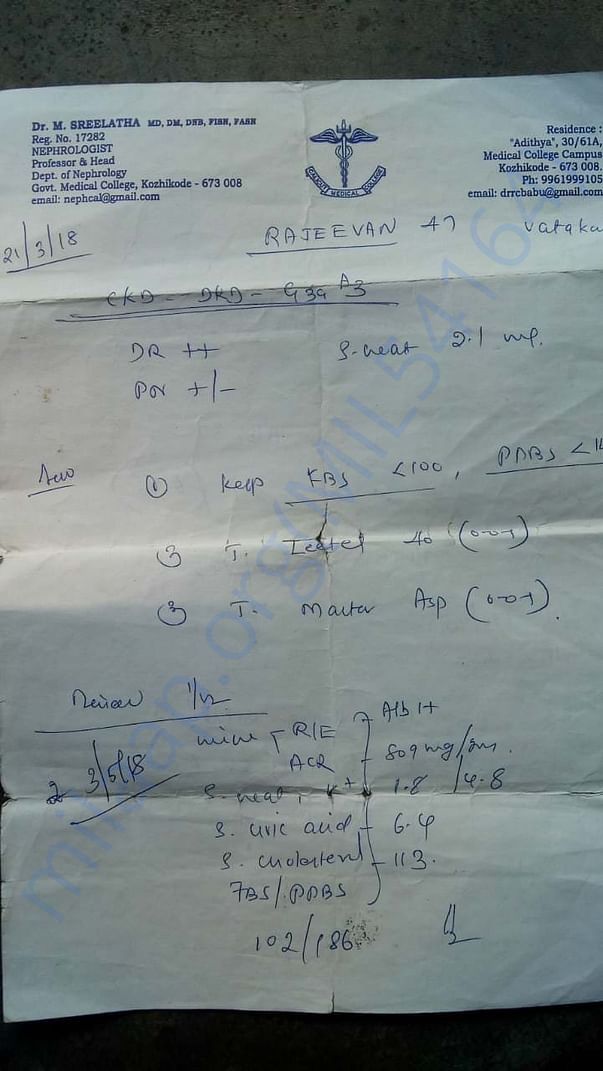 Dr. M. SREELATHA MD, DM, DNB, FISN, FASN
Reg. No. 17282
NEPHROLOGIST
Professor & Head
Dept. of Nephrology
Govt. Medical College, Kozhikode - 673 008
email: nephcal@gmail.com
CALICUT MEDICAL COLLEGE
Residence :
"Adithya", 30/61A,
Medical College Campus
Kozhikode - 673 008.
Ph: 9961999105
email: drrcbabu@gmail.com
21/3/18
RAJEEVAN 47 Vataka
CKD - DKD - G3a A3
DR ++ S. creat 2.1 mg.
+/-
① Keep FBS <100, PPBS <
T. 40 (0-0-1)
③ T. Asp (0-0-1).
Review 1/12
urine R/E Alb 1+
3/5/18 ACR 809 mg/gm.
S. creat, K+ 1.8 / 4.8
S. uric acid - 6.4
S. cholesterol - 113.
FBS/PPBS
102/186
milaap.org/MIL54164